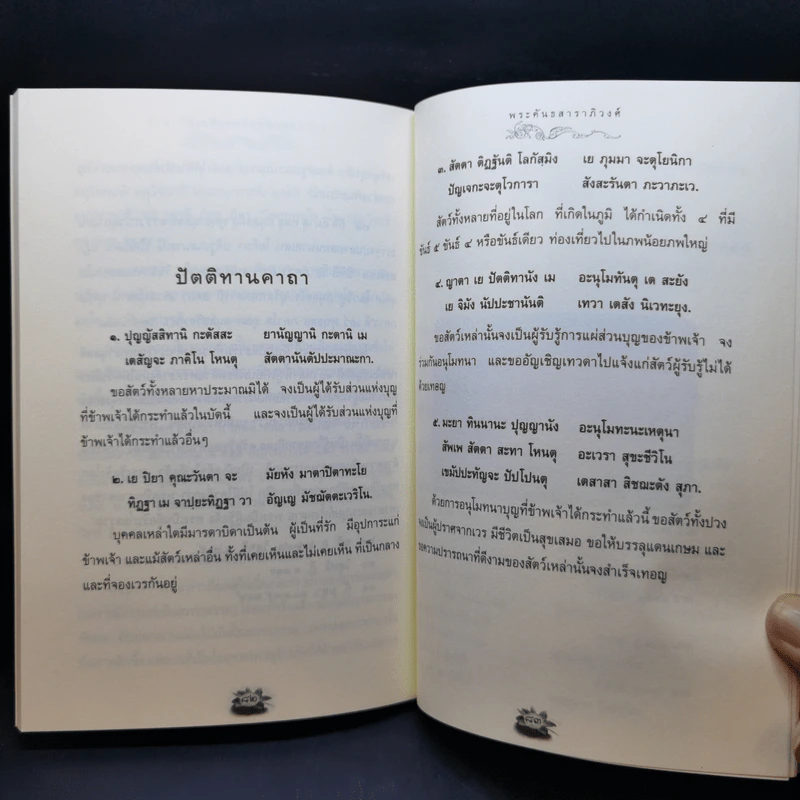 ปัตติทานคาถา
๑. ปุญญัสสิทานิ กะตัสสะ ยานัญญานิ กะตานิ เม
เตสัญจะ ภาคิโน โหนตุ สัตตานันตัปปะมาณะกา.
ขอสัตว์ทั้งหลายหาประมาณมิได้ จงเป็นผู้ได้รับส่วนแห่งบุญ
ที่ข้าพเจ้าได้กระทำแล้วในบัดนี้ และจงเป็นผู้ได้รับส่วนแห่งบุญที่
ข้าพเจ้าได้กระทำแล้วอื่นๆ
๒. เย ปิยา คุณะวันตา จะ มัยหัง มาตาปิตาทะโย
ทิฏฐา เม จาปฺยะทิฏฐา วา อัญเญ มัชฌัตตะเวริโน.
บุคคลเหล่าใดมีมารดาบิดาเป็นต้น ผู้เป็นที่รัก มีอุปการะแก่
ข้าพเจ้า และแม้สัตว์เหล่าอื่น ทั้งที่เคยเห็นและไม่เคยเห็น ที่เป็นกลาง
และที่จองเวรกันอยู่
๘๒
พระคันธสาราภิวงศ์
๓. สัตตา ติฏฐันติ โลกัสฺมิง เย ภุมมา จะตุโยนิกา
ปัญเจกะจะตุโวการา สังสะรันตา ภะวาภะเว.
สัตว์ทั้งหลายที่อยู่ในโลก ที่เกิดในภูมิ ได้กำเนิดทั้ง ๔ ที่มี
ขันธ์ ๕ ขันธ์ ๔ หรือขันธ์เดียว ท่องเที่ยวไปในภพน้อยภพใหญ่
๔. ญาตา เย ปัตติทานัง เม อะนุโมทันตุ เต สะยัง
เย จิมัง นัปปะชานันติ เทวา เตสัง นิเวทะยุง.
ขอสัตว์เหล่านั้นจงเป็นผู้รับรู้การแผ่ส่วนบุญของข้าพเจ้า จง
ร่วมกันอนุโมทนา และขออัญเชิญเทวดาไปแจ้งแก่สัตว์ผู้รับรู้ไม่ได้
ด้วยเทอญ
๕. มะยา ทินนานะ ปุญญานัง อะนุโมทะนะเหตุนา
สัพเพ สัตตา สะทา โหนตุ อะเวรา สุขะชีวิโน
เขมัปปะทัญจะ ปัปโปนตุ เตสาสา สิชฌะตัง สุภา.
ด้วยการอนุโมทนาบุญที่ข้าพเจ้าได้กระทำแล้วนี้ ขอสัตว์ทั้งปวง
จงเป็นผู้ปราศจากเวร มีชีวิตเป็นสุขเสมอ ขอให้บรรลุแดนเกษม และ
ขอความปรารถนาที่ดีงามของสัตว์เหล่านั้นจงสำเร็จเทอญ
๘๓